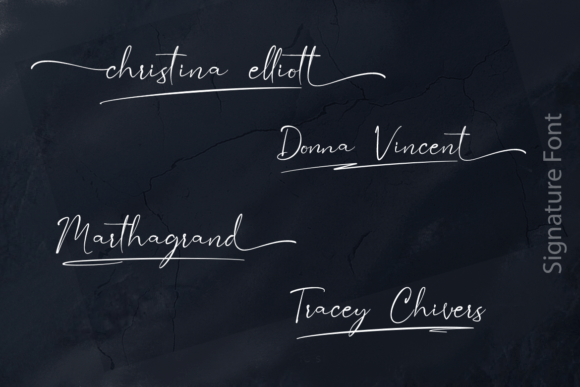 christina elliott
Donna Vincent
Marthagrand
Tracey Chivers
Signature Font